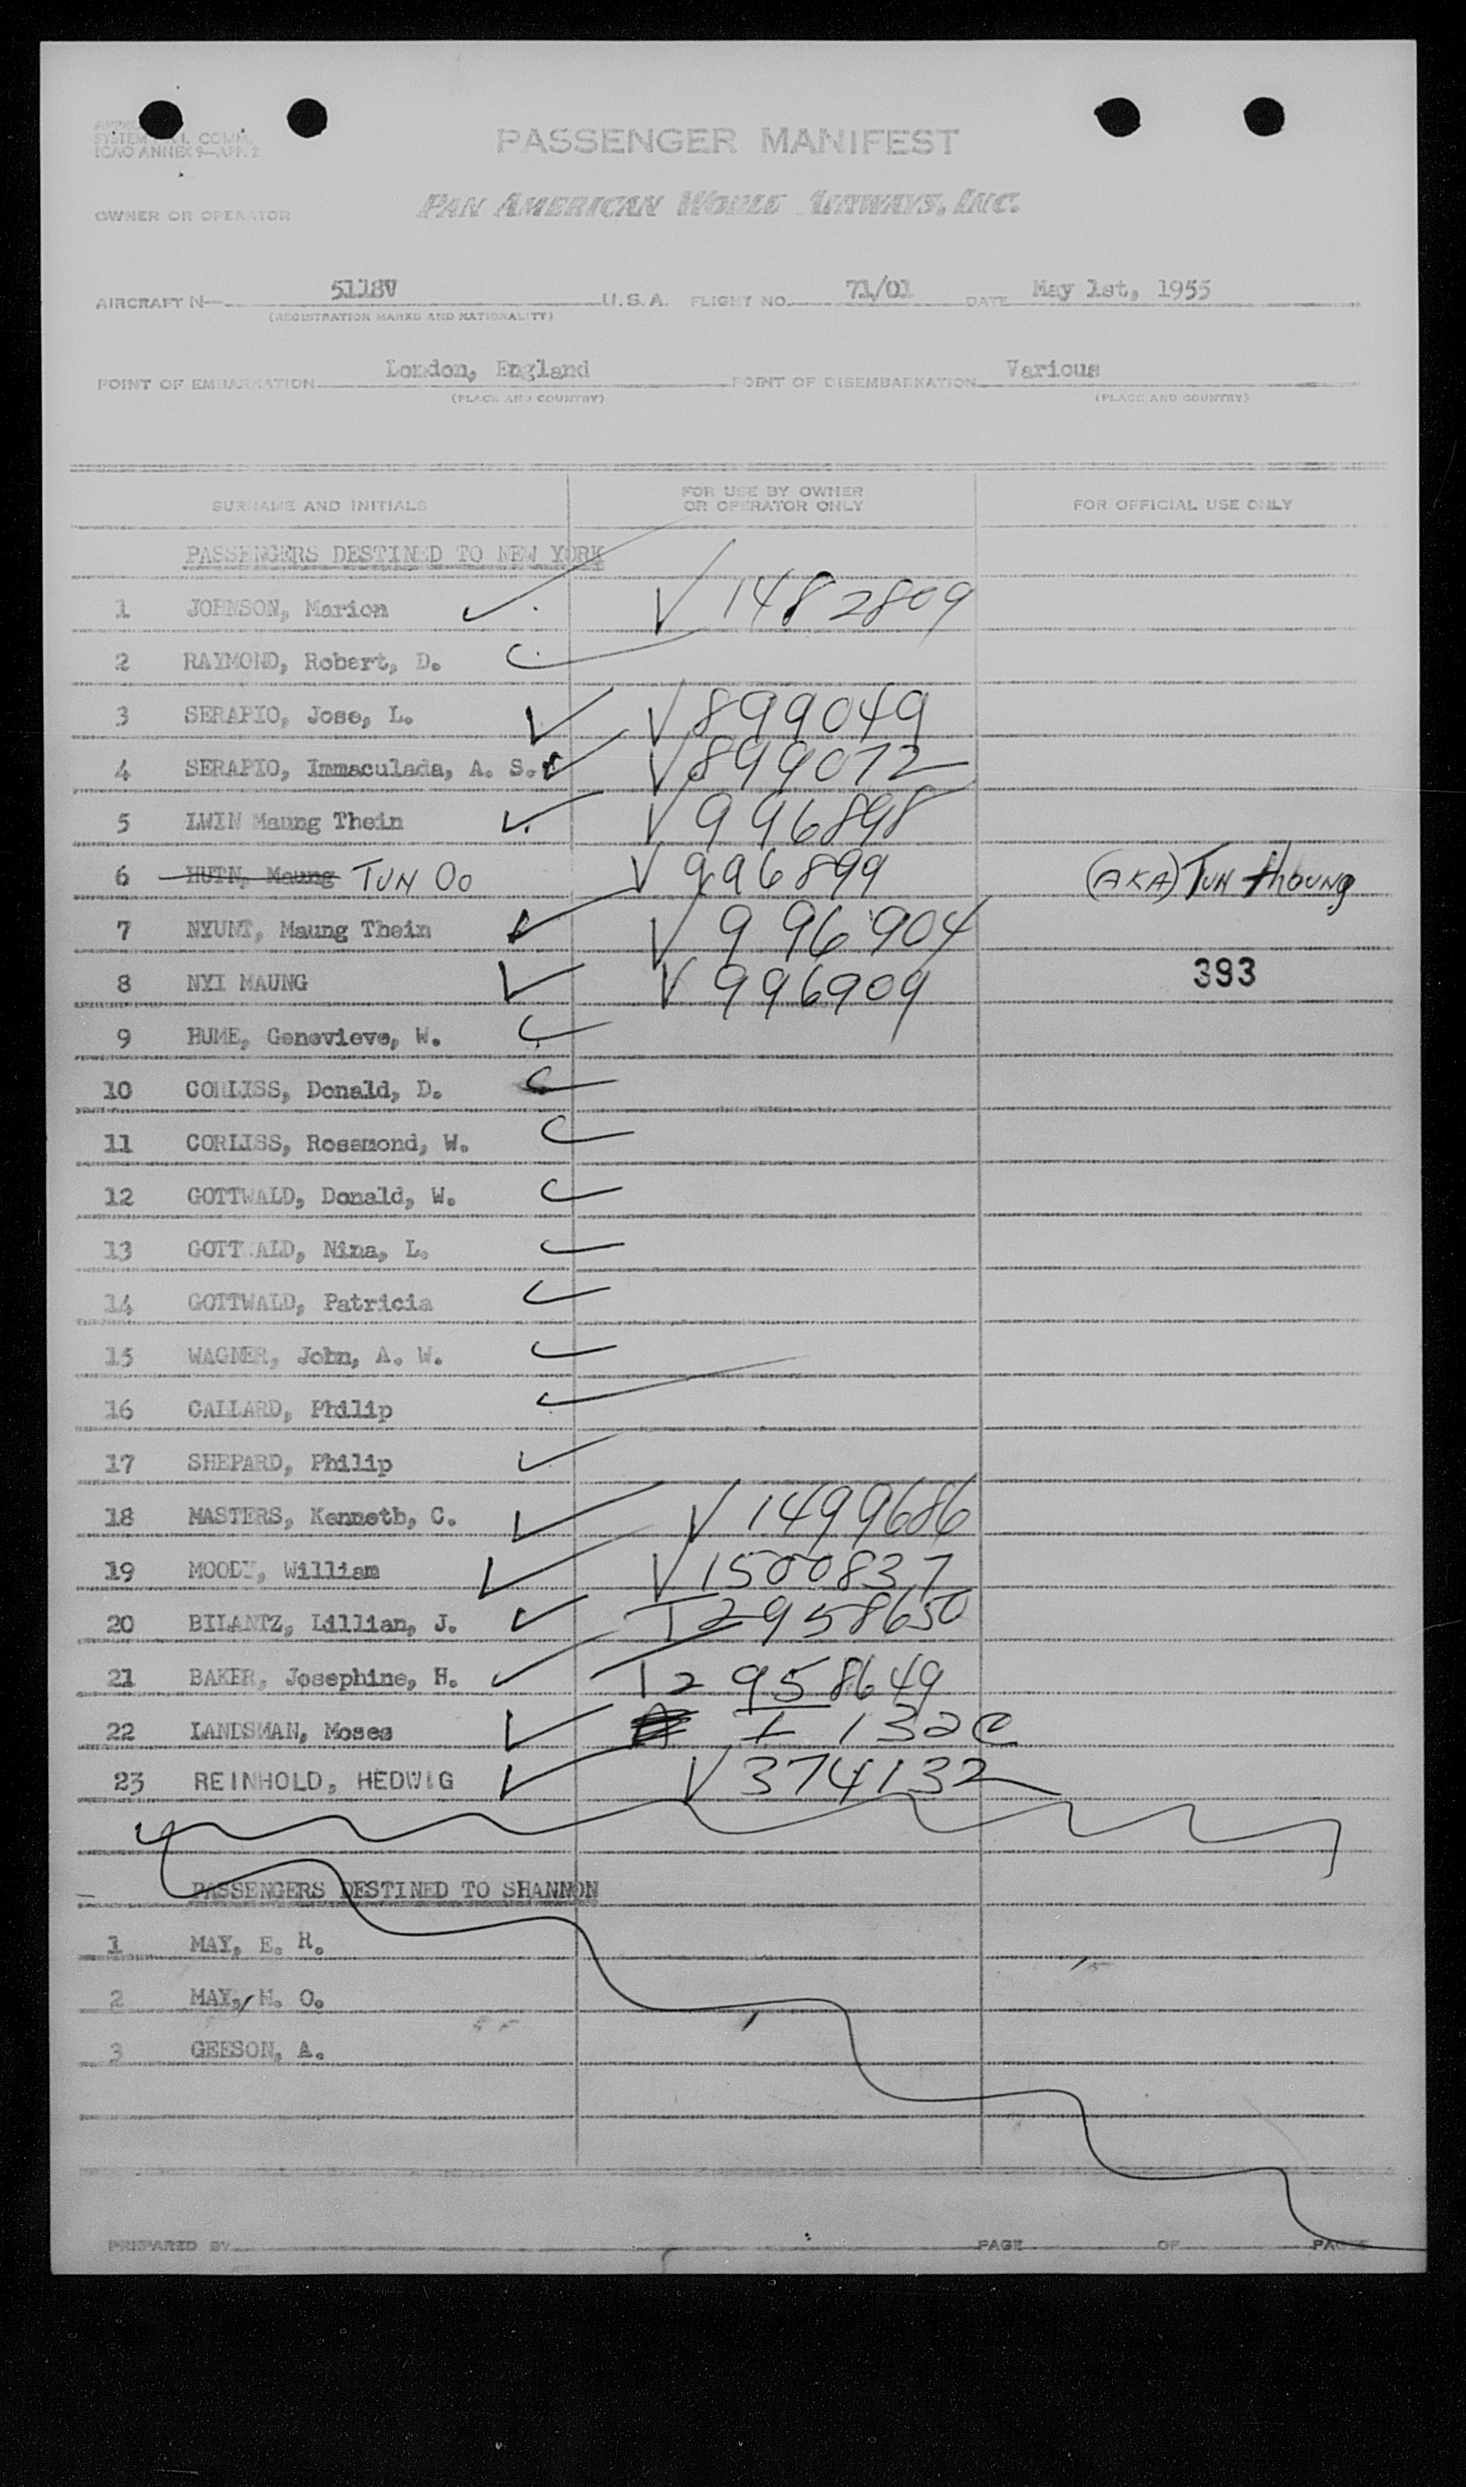 SYSTEM COMM.
ICAO ANNEX 9—APP. 2
PASSENGER MANIFEST
OWNER OR OPERATOR PAN AMERICAN WORLD AIRWAYS, INC.
AIRCRAFT N— 5118V U.S.A. FLIGHT NO. 71/01 DATE May 1st, 1955
(REGISTRATION MARKS AND NATIONALITY)
POINT OF EMBARKATION London, England POINT OF DISEMBARKATION Various
(PLACE AND COUNTRY) (PLACE AND COUNTRY)
SURNAME AND INITIALS FOR USE BY OWNER OR OPERATOR ONLY FOR OFFICIAL USE ONLY
PASSENGERS DESTINED TO NEW YORK
1 JOHNSON, Marion V 1482809
2 RAYMOND, Robert, D.
3 SERAPIO, Jose, L. V 899049
4 SERAPIO, Immaculada, A. S. V 899072
5 LWIN Maung Thein V 996898
6 HUTN, Maung TUN OO V 996899 (AKA) TUN thoung
7 NYUNT, Maung Thein V 996904
8 NYI MAUNG V 996909 393
9 HUME, Genevieve, W.
10 CORLISS, Donald, D.
11 CORLISS, Rosemond, W.
12 GOTTWALD, Donald, W.
13 GOTTWALD, Nina, L.
14 GOTTWALD, Patricia
15 WAGNER, John, A. W.
16 CALLARD, Philip
17 SHEPARD, Philip
18 MASTERS, Kenneth, C. V 1499686
19 MOODY, William V 1500837
20 BILANTZ, Lillian, J. I 2958650
21 BAKER, Josephine, H. I 2958649
22 LANDSMAN, Moses I 132C
23 REINHOLD, HEDWIG V 374132
PASSENGERS DESTINED TO SHANNON
1 MAY, E. R.
2 MAY, H. O.
3 GEESON, A.
PREPARED BY PAGE OF PAGES